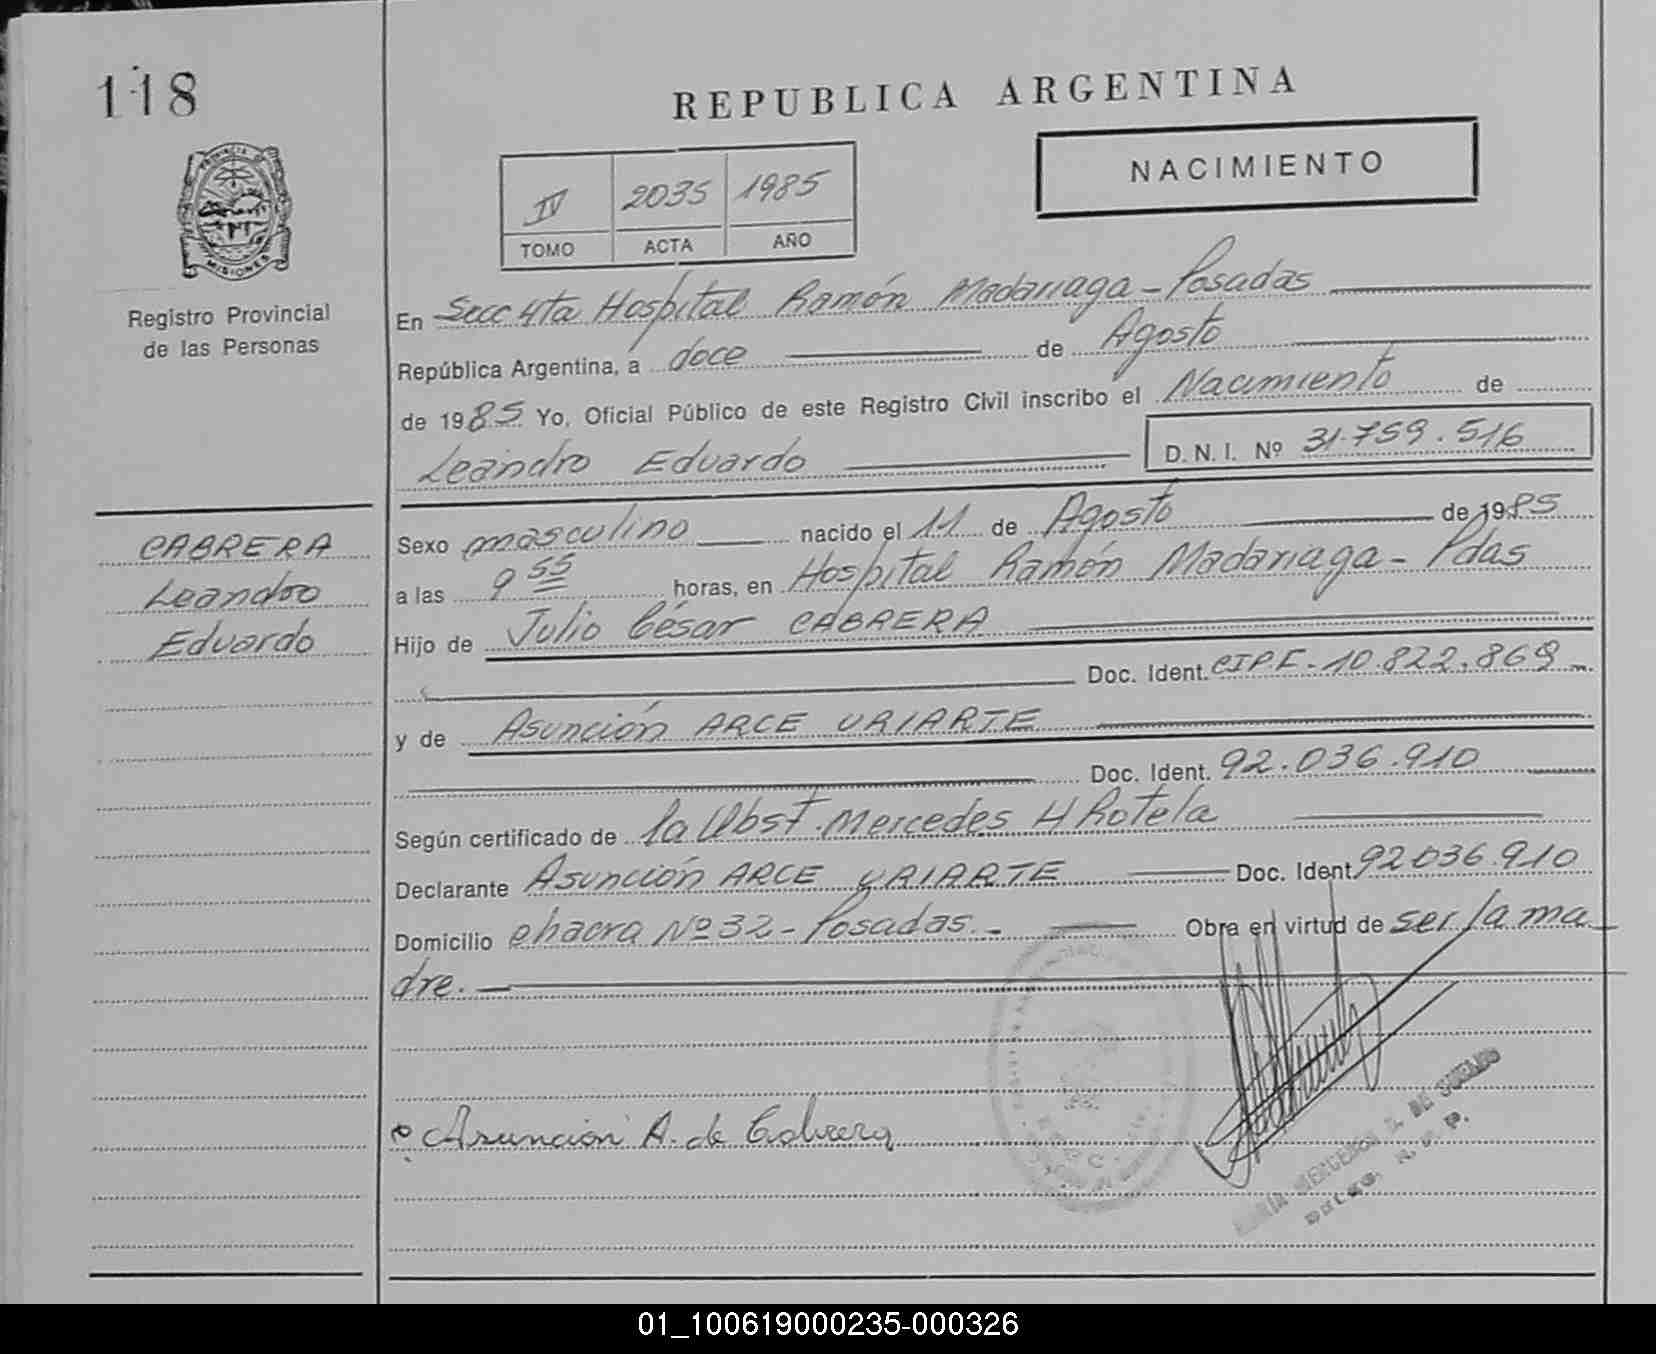 118
REPUBLICA ARGENTINA
NACIMIENTO
IV 2035 1985
TOMO ACTA AÑO
PROVINCIA DE
MISIONES
Registro Provincial
de las Personas
En Secc 4ta Hospital Ramón Madariaga - Posadas
República Argentina, a doce de Agosto
de 1985 Yo, Oficial Público de este Registro Civil inscribo el Nacimiento de
Leandro Eduardo D. N. I. Nº 31.759.516
CABRERA
Leandro
Eduardo
Sexo masculino nacido el 11 de Agosto de 1985
a las 9 55 horas, en Hospital Ramón Madariaga - Pdas
Hijo de Julio César CABRERA
Doc. Ident. CIPF. 10.822.869
y de Asunción ARCE URIARTE
Doc. Ident. 92.036.910
Según certificado de la Obst. Mercedes H Rotela
Declarante Asunción ARCE URIARTE Doc. Ident. 92036.910
Domicilio chacra Nº 32 - Posadas. - Obra en virtud de ser la ma
dre.
Asunción A. de Cabrera
01_100619000235-000326